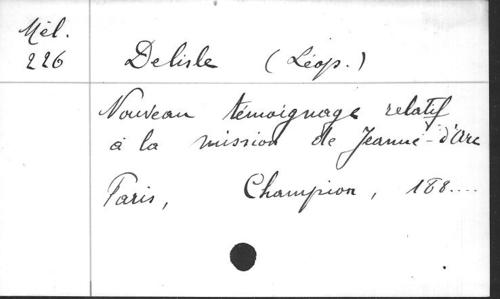 Mél.
226
Delisle (Léop.)
Nouveau témoignage relatif
à la mission de Jeanne-d'Arc
Paris, Champion, 188....